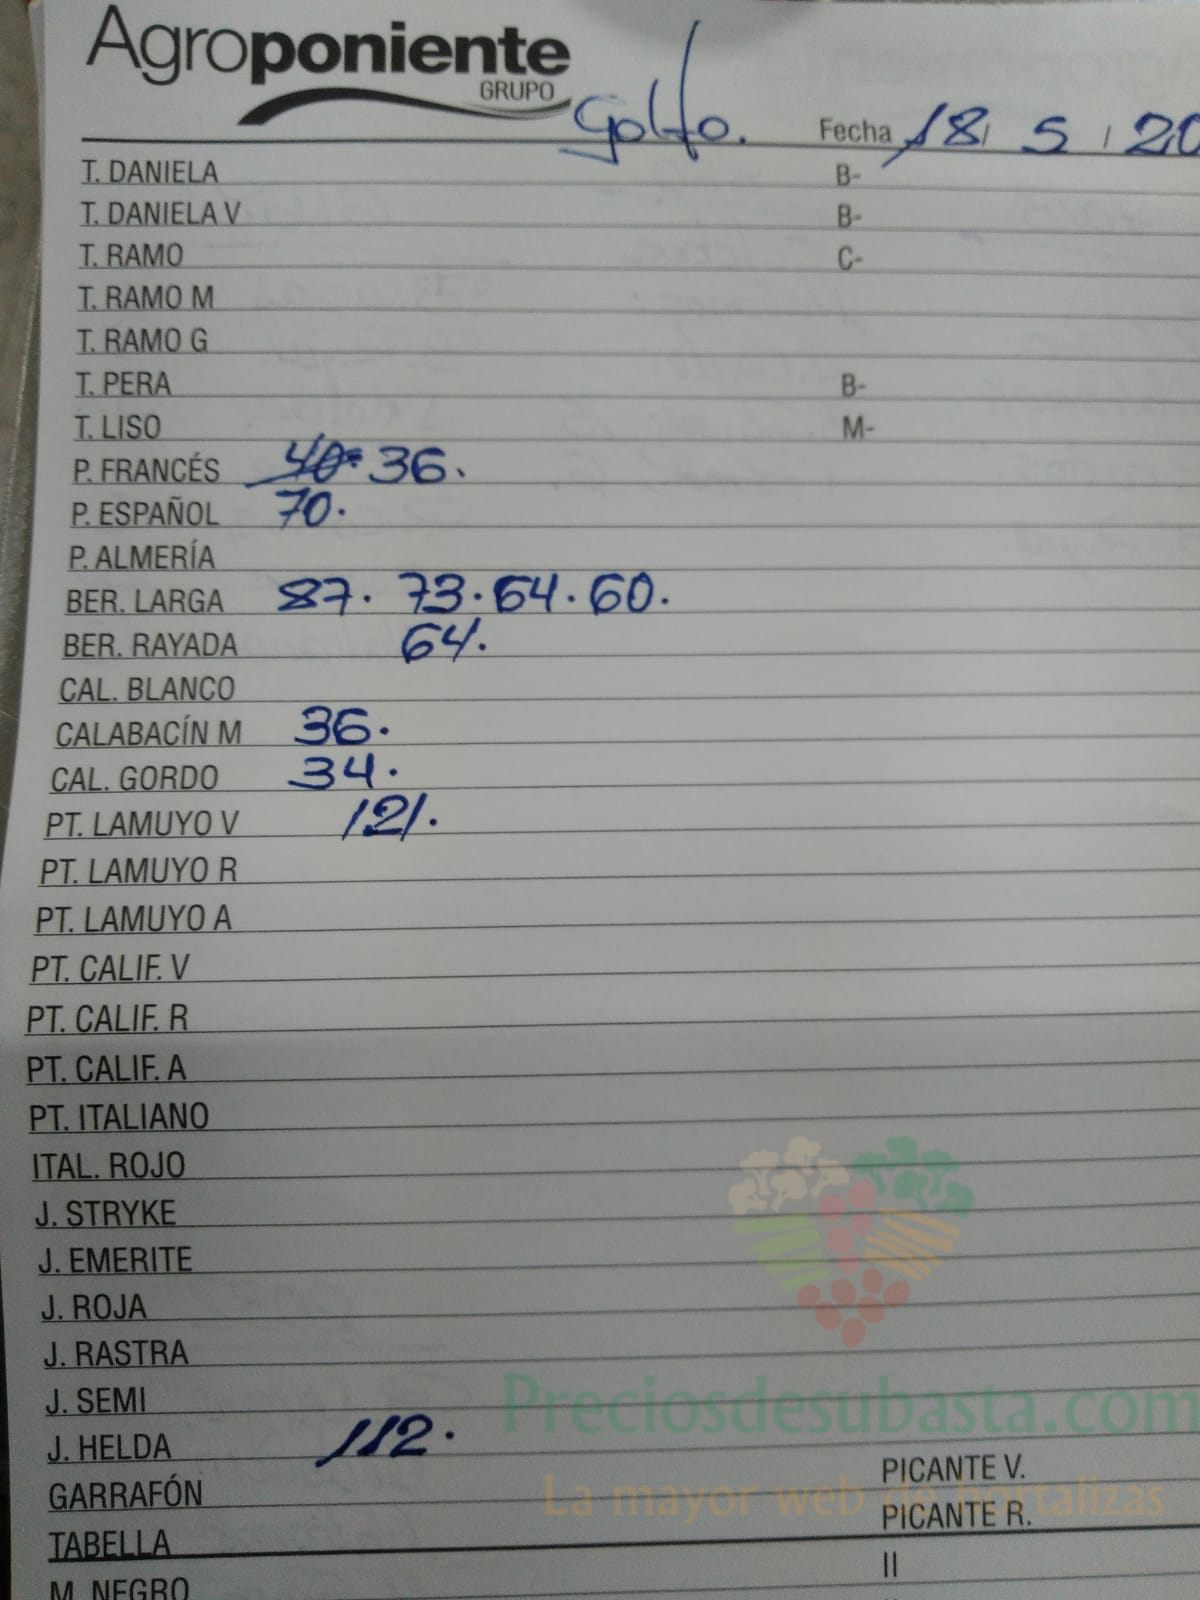 Agroponiente
GRUPO
Golfo. Fecha 18/ 5 / 20
T. DANIELA B-
T. DANIELA V B-
T. RAMO C-
T. RAMO M
T. RAMO G
T. PERA B-
T. LISO M-
P. FRANCÉS 40. 36.
P. ESPAÑOL 70.
P. ALMERÍA
BER. LARGA 87. 73. 64. 60.
BER. RAYADA 64.
CAL. BLANCO
CALABACÍN M 36.
CAL. GORDO 34.
PT. LAMUYO V 121.
PT. LAMUYO R
PT. LAMUYO A
PT. CALIF. V
PT. CALIF. R
PT. CALIF. A
PT. ITALIANO
ITAL. ROJO
J. STRYKE
J. EMERITE
J. ROJA
J. RASTRA
J. SEMI
Preciosdesubasta.com
J. HELDA 112.
PICANTE V.
GARRAFÓN
La mayor web de hortalizas
PICANTE R.
TABELLA
II
M. NEGRO